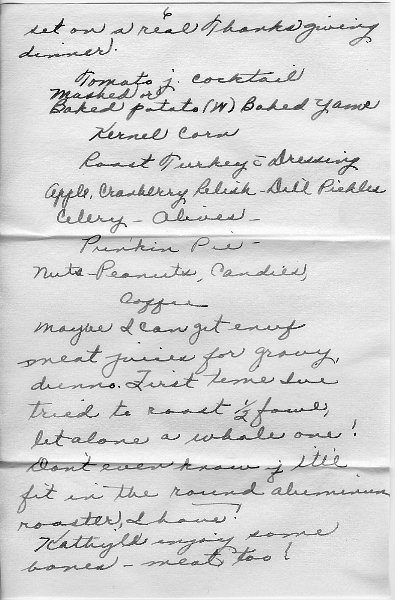 6
set on a real Thanksgiving
dinner.
Tomato j. cocktail
Mashed or
Baked potato (W) Baked Yams
Kernel Corn
Roast Turkey c̄ Dressing
Apple, Cranberry Relish - Dill Pickles
Celery - Olives -
Punkin Pie -
Nuts - Peanuts, Candies,
Coffee
Maybe I can get enuf
meat juices for gravy,
dunno. First time I've
tried to roast ½ fowl,
let alone a whole one!
Don't even know if it'll
fit in the round aluminum
roaster, I have!
Kathy'll enjoy some
bones - meat too!